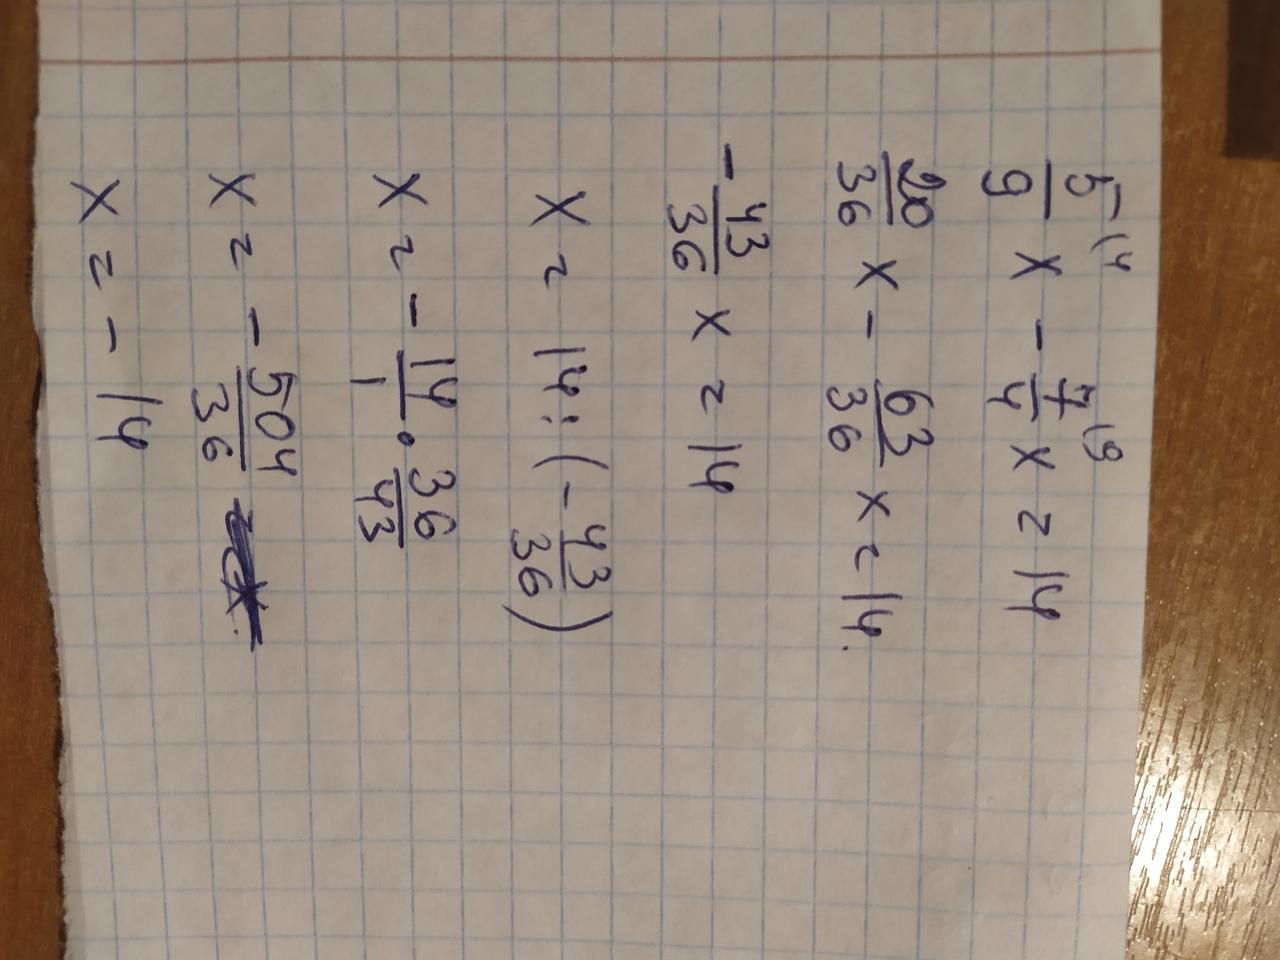 5/9 \4 x - 7/4 \9 x = 14
20/36 x - 63/36 x = 14.
- 43/36 x = 14
x = 14 : (- 43/36)
x = - 14/1 · 36/43
x = - 504/36
x = - 14